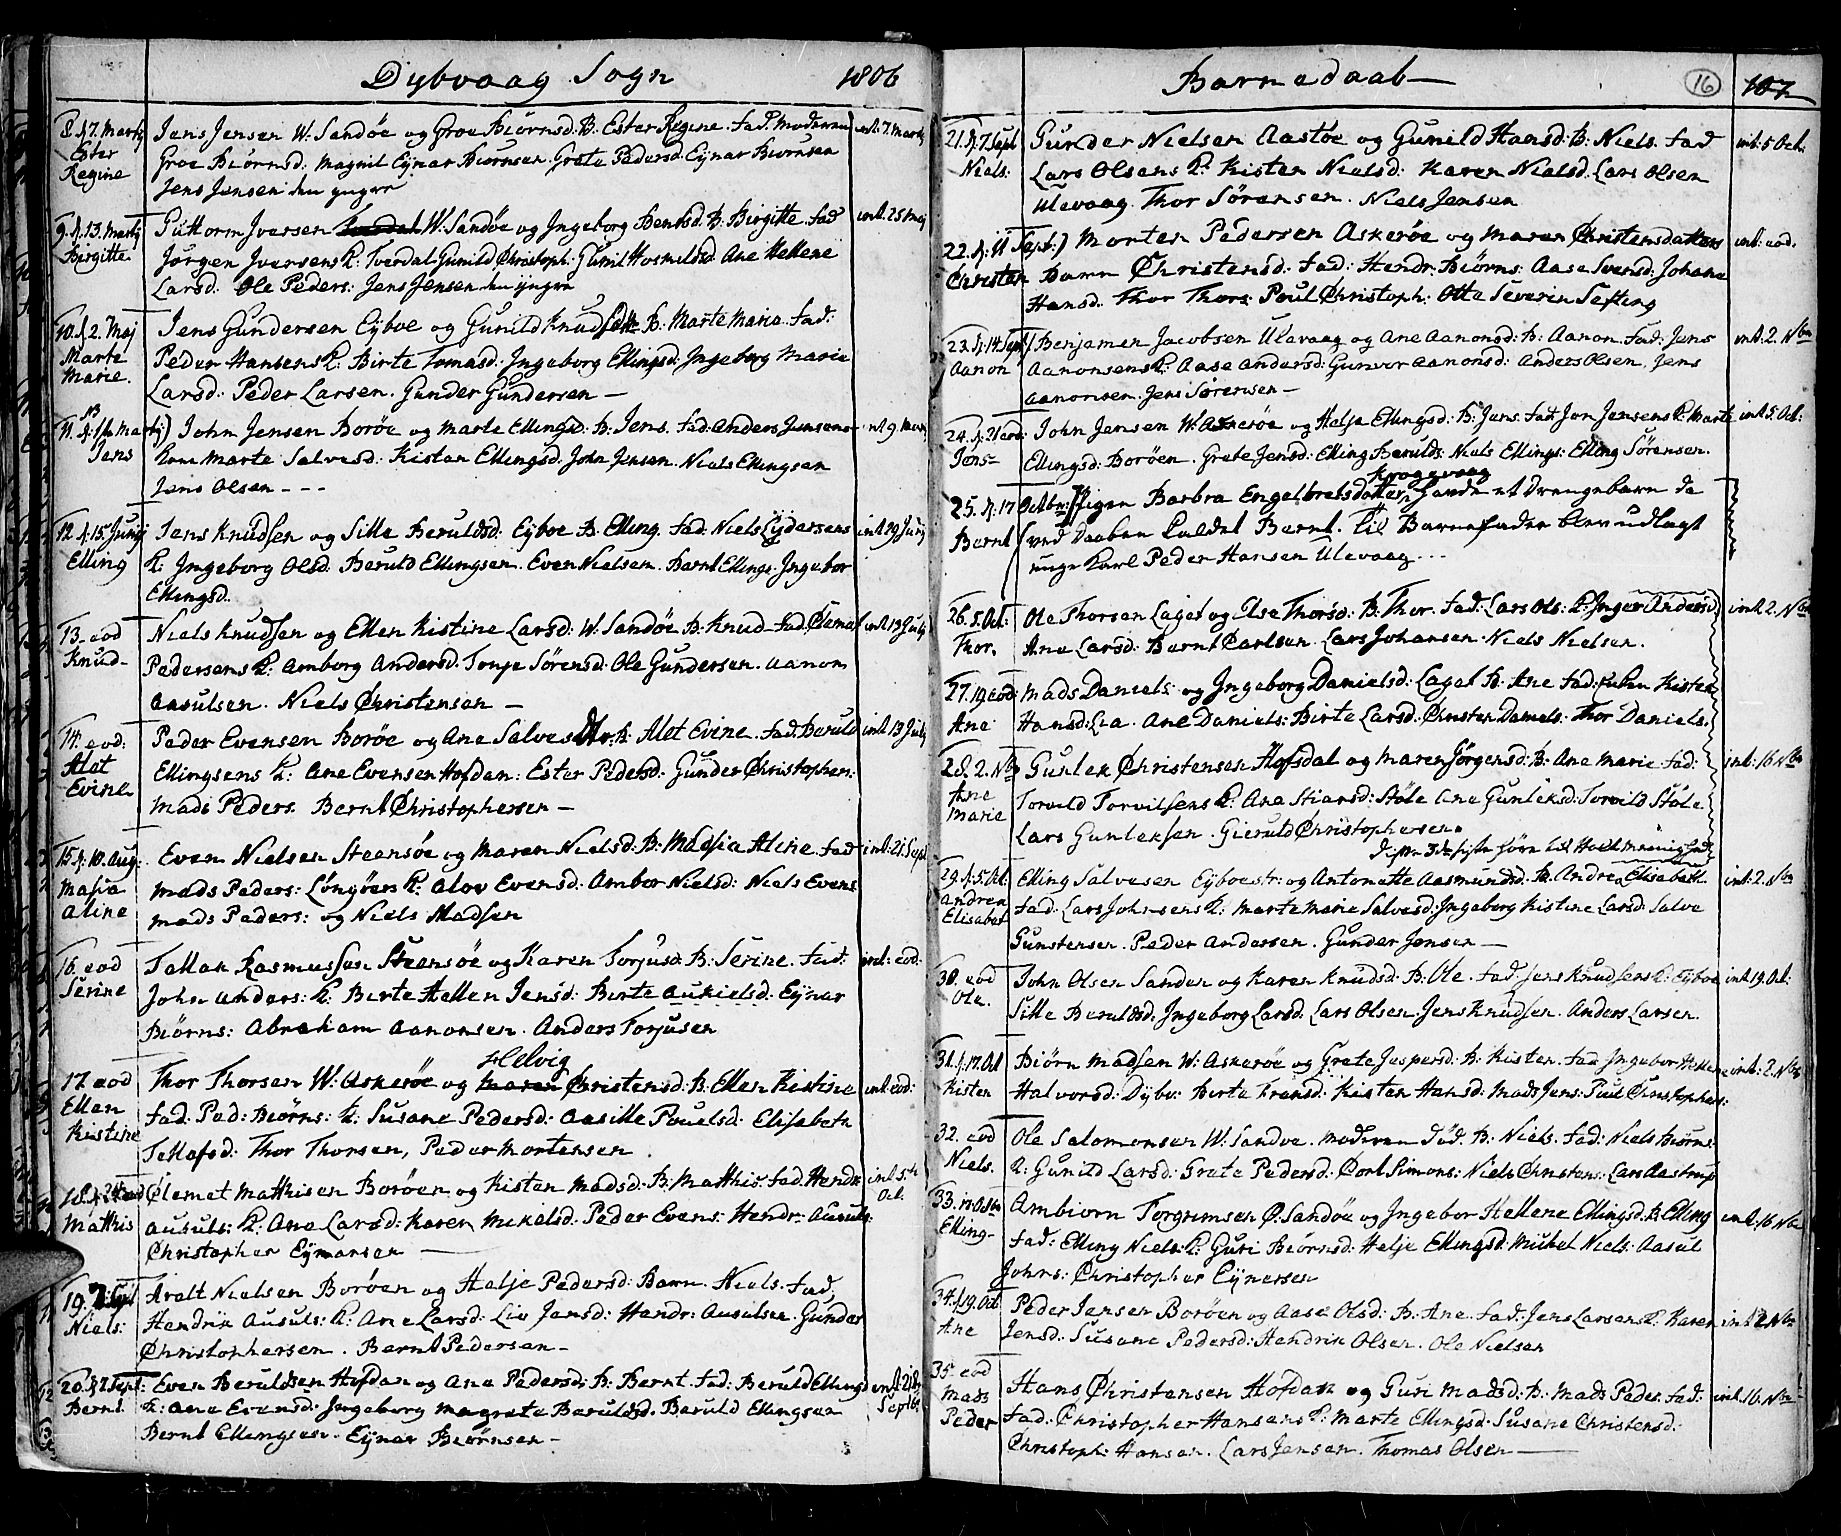 Dybvaag Sogn 1806
8. d. 7. Martj Jens Jensen W. Sandøe og Groe Biørnsd. B. Ester Regine. Fad. Moderen int. 7. Martj
Ester Groe Biørnsd. Magnil Eynar Biørnsen. Grete Pedersd. Eynar Biørnsen
Regine Jens Jensen den yngre
9. d. 13. Martj Guttorm Iversen W. Sandøe og Ingeborg Bentsd. B. Birgitte. Fad int. 25 Maj
Birgitte Jørgen Iversens K. Tverdal Gunild Christoph. Gunil Hosmildsd. Ane Hellene
Larsd. Ole Peders: Jens Jensen den yngre
10. d. 2. Maj Jens Gundersen Eyboe og Gunild Knudsdtr B. Marte Maria. Fad:
Marte Peder Hansens K. Birte Tomasd: Ingeborg Ellingsd: Ingeborg Marie
Marie. Larsd: Peder Larsen. Gunder Gundersen —
11. d. 13 Martj) John Jensen Borøe og Marte Ellingsd. B. Jens. Fad: Anders Jensens int. 9. Martj
Jens Kone Marte Salvesd. Kisten Ellingsd. John Jensen. Niels Ellingsen
Jens Olsen - - -
12. d. 15. Junij Jens Knudsen og Sille Beruldsd: Eyboe B. Elling. Fad. Niels Lydersens int. 29 Junij
Elling K. Ingeborg Olsd. Beruld Ellingsen. Even Nielsen. Bernt Ellings. Ingebor
Ellingsd.
13. eod Niels Knudsen og Ellen Kistine Larsd: W. Sandøe B. Knud. Fad: Clemet int. 13 Julij
Knud Pedersens K. Amborg Andersd. Tonje Sørensd. Ole Gundersen. Aanon
Aasulsen. Niels Christensen —
14. eod: Peder Evensen Borøe og Ane Salvesdtr. B. Alet Evine. Fad: Beruld int. 13 Julij
Alet Ellingsens K: Ane Evensen Hofdan: Ester Pedersd: Gunder Christophers:
Evine Mads Peders. Bernt Christophersen —
15. d. 10. Aug. Even Nielsen Steensøe og Maren Nielsd: B: Madsia Aline. Fad int. 21 Sept
Masia Mads Peders: Løngøer K: Alov Evensd: Ambor Nielsd: Niels Evens
Aline Mads Peders: og Niels Madsen
16. eod Tallak Rasmussen Steensøe og Karen Torjusd: B: Serine. Fad: int: eod:
Serine John Anders: K: Berte Hellen Jensd: Berte Aukielsd. Eynar
Biørns: Abraham Aanonsen. Anders Torjusen
Helvig
17. eod Thor Thorsen W. Askerøe og Maren Christensd: B. Ellen Kistine int. eod:
Ellen Fad. Ped: Biørns: K. Susane Pedersd: Aasille Pouelsd: Elisabeth
Kistine Tellofsd: Thor Thorsen, Peder Mortensen
18. Clemet Mathisen Borøen og Kisten Madsd. B: Mathis. Fad. Hendr int. 5te
Mathis Ausuls: K. Ane Larsd: Karen Mikelsd. Peder Evens: Hendr: Ausuls: Oct.
Christopher Eynersen —
19. 7. Sept Aralt Nielsen Borøen og Helje Pedersd: Barn. Niels. Fad.
Niels: Hendrik Ausuls: K: Ane Larsd: Liv Jensd: Hendr: Ausulsen. Gunder
Christophersen. Bernt Pedersen —
20. d. 7 Sept: Even Beruldsen Hofdan og Ane Pedersd. B. Bernt. Fad: Beruld Ellings int. 21de
Bernt. K: Ane Evensd: Ingeborg Magrete Beruldsd. Beruld Ellingsen Septbr
Bernt Ellingsen. Eynar Biørnsen —
Barnedaab — 16 107
21. d. 7 Sept Gunder Nielsen Aastøe og Gunild Hansd: B: Niels. Fad int: 5 Oct.
Niels: Lars Olsens K: Kisten Nielsd: Karen Nielsd. Lars Olsen
Ulevaag. Thor Sørensen. Niels Jensen
22. d. 11 Sept:) Morten Pedersen Askerøe og Maren Christensdatters int: eod.
Christen Barn Christensd. Fad: Hendr: Biørns: Aase Svensd: Johane
Hansd. Thor Thors: Poul Christoph: Otte Severin Sefting
23. d. 14 Sept) Benjamen Jacobsen Ulevaag og Ane Aanonsd: B: Aanon. Fad: Jens int. 2. Nbr
Aanon Aanonsens K: Aase Andersd: Gunvor Aanonsd: Anders Olsen, Jens
Aanonsen. Jens Sørensen —
24. d. 21 eod: John Jensen W. Askerøe og Helje Ellingsd: B: Jens. Fad Jon Jensens K. Marte int. 5 Oct.
Jens Ellingsd: Borøen. Grete Jensd: Elling Berulds: Niels Ellings: Elling Sørensen.
Krogevaag
25. d. 17 Octbr: Pigen Barbra Engelbretsdatter, havde et Drengebarn da
Bernt ved Daaben kaldet Bernt. Til Barnefader blev udlagt
unge Karl Peder Hansen Ulevaag ...
26. 5. Oct: Ole Thorsen Laget og Else Thorsd: B: Thor. Fad: Lars Ols: K: Inger Andersd int. 2. Nbr
Thor. Ane Larsd: Bernt Carlsen. Lars Johansen. Niels Nielsen.
27. 19 eod: Mads Daniels: og Ingeborg Danielsd: Laget B: Ane Fad: Kisten
Ane Hansd: Lia. Ane Daniels: Birte Larsd: Christen Daniels: Thor Daniels.
28. 2. Nbr Gunlek Christensen Hofsdal og Maren Jørgensd: B: Ane Marie Fad: int: 16 Nbr
Ane Torvild Torvilsens K: Ane Stiansd: Støle Ane Gunleksd: Torvild Støle
Marie Lars Gunleksen. Gieruld Christophersen.
Disse 3de sidste hører til Holt Menighed
29. d. 5. Oct. Elling Salvesen Eyboestr: og Antonette Aasmundsd. B. Andrea Elisabett int: 2. Nbr
Andrea Fad. Lars Johnsens K: Marte Marie Salvesd: Ingeborg Kistine Larsd: Salve
Elisabet Gunstensen. Peder Andersen. Gunder Jensen —
30. eod John Olsen Sanden og Karen Knudsd: B: Ole. Fad: Jens Knudsens K: Eyboe int. 19. Oct:
Ole. Sille Beruldsd: Ingeborg Larsd: Lars Olsen. Jens Knudsen. Anders Larsen.
31. d. 17. Oct Biørn Madsen W: Askerøe og Grete Jespersd: B: Kisten. Fad Ingebor Hellene int: 2. Nbr
Kisten Halvorsd: Dybv: Berte Fransd: Kisten Hansd: Mads Jens: Poul Christophers:
32. eod Ole Salomonsen W: Sandøe. Moderen død. B: Niels. Fad: Niels Biørns:
Niels. K: Gunild Larsd: Grete Pedersd: Simons: Niels Christens: Lars Aastrup
33. Ambiorn Torgrimsen Ø. Sandøe og Ingebor Hellene Ellingsd: B: Elling int: 16 Nbr
Elling Fad: Elling Niels: K: Guri Biørnsd: Helje Ellingsd: Mikel Niels: Aasul
Johns: Christopher Eynersen
34. d. 19. Oct Peder Jensen Borøen og Aase Olsd: B: Ane. Fad: Jens Larsens K: Karen int 2 Nbr
Ane Jensd: Susane Pedersd: Hendrik Olsen. Ole Nielsen
35. eod Hans Christensen Hofdan og Guri Madsd: B: Mads Peder. Fad: int. 16. Nbr
Mads Fad: Christopher Hansens K: Marte Ellingsd: Susane Christensd:
Peder Christoph: Hansen. Lars Jensen. Thomas Olsen —